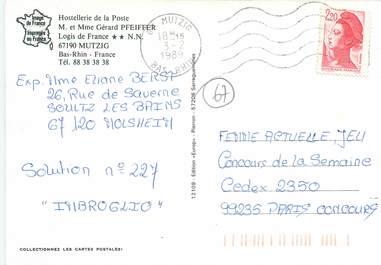 Image
de France
Imprimée
en France
Hostellerie de la Poste
M. et Mme Gérard PFEIFFER
Logis de France ★★ N.N.
67190 MUTZIG
Bas-Rhin - France
Tél. 88 38 38 38
MUTZIG
18H
3-2
1989
BAS-RHIN
2,20
Exp. Mme Eliane BERST
26, Rue de Saverne
SOULTZ LES BAINS
67120 MOLSHEIM
Solution n° 227
"IMBROGLIO"
67
12109 - Edition «Europ» - Pierron - 57206 Sarreguemines
FEMME ACTUELLE, JEU
Concours de la Semaine
Cedex 2350
99235 PARIS CONCOURS
COLLECTIONNEZ LES CARTES POSTALES!